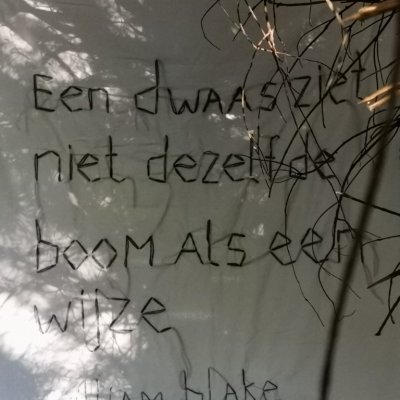 Een dwaas ziet
niet dezelfde
boom als een
wijze
William Blake